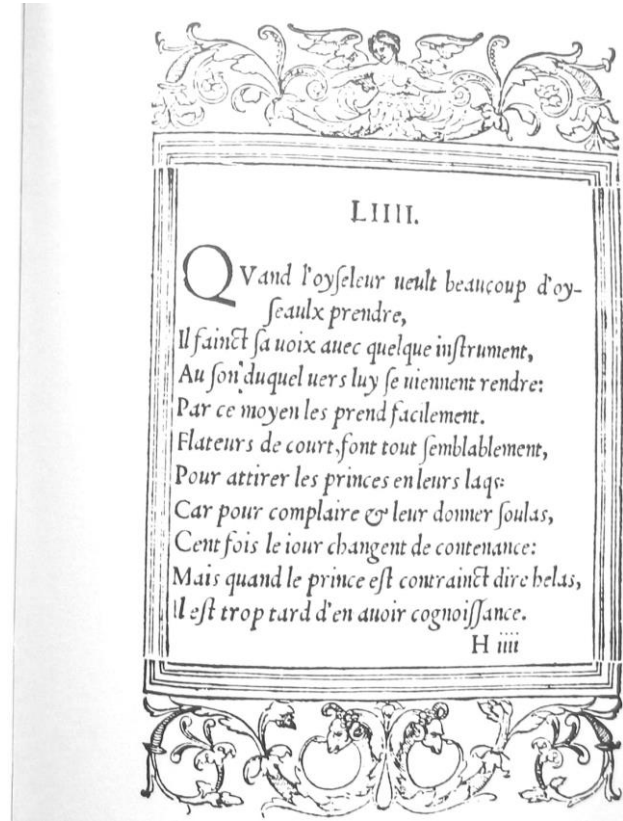 LIIII.
QVand l'oyſeleur ueult beaucoup d'oy-
ſeaulx prendre,
Il fainct ſa uoix auec quelque inſtrument,
Au ſon duquel uers luy ſe uiennent rendre:
Par ce moyen les prend facilement.
Flateurs de court, font tout ſemblablement,
Pour attirer les princes en leurs laqs:
Car pour complaire & leur donner ſoulas,
Cent fois le iour changent de contenance:
Mais quand le prince eſt contrainct dire helas,
Il eſt trop tard d'en auoir cognoiſſance.
H iiii